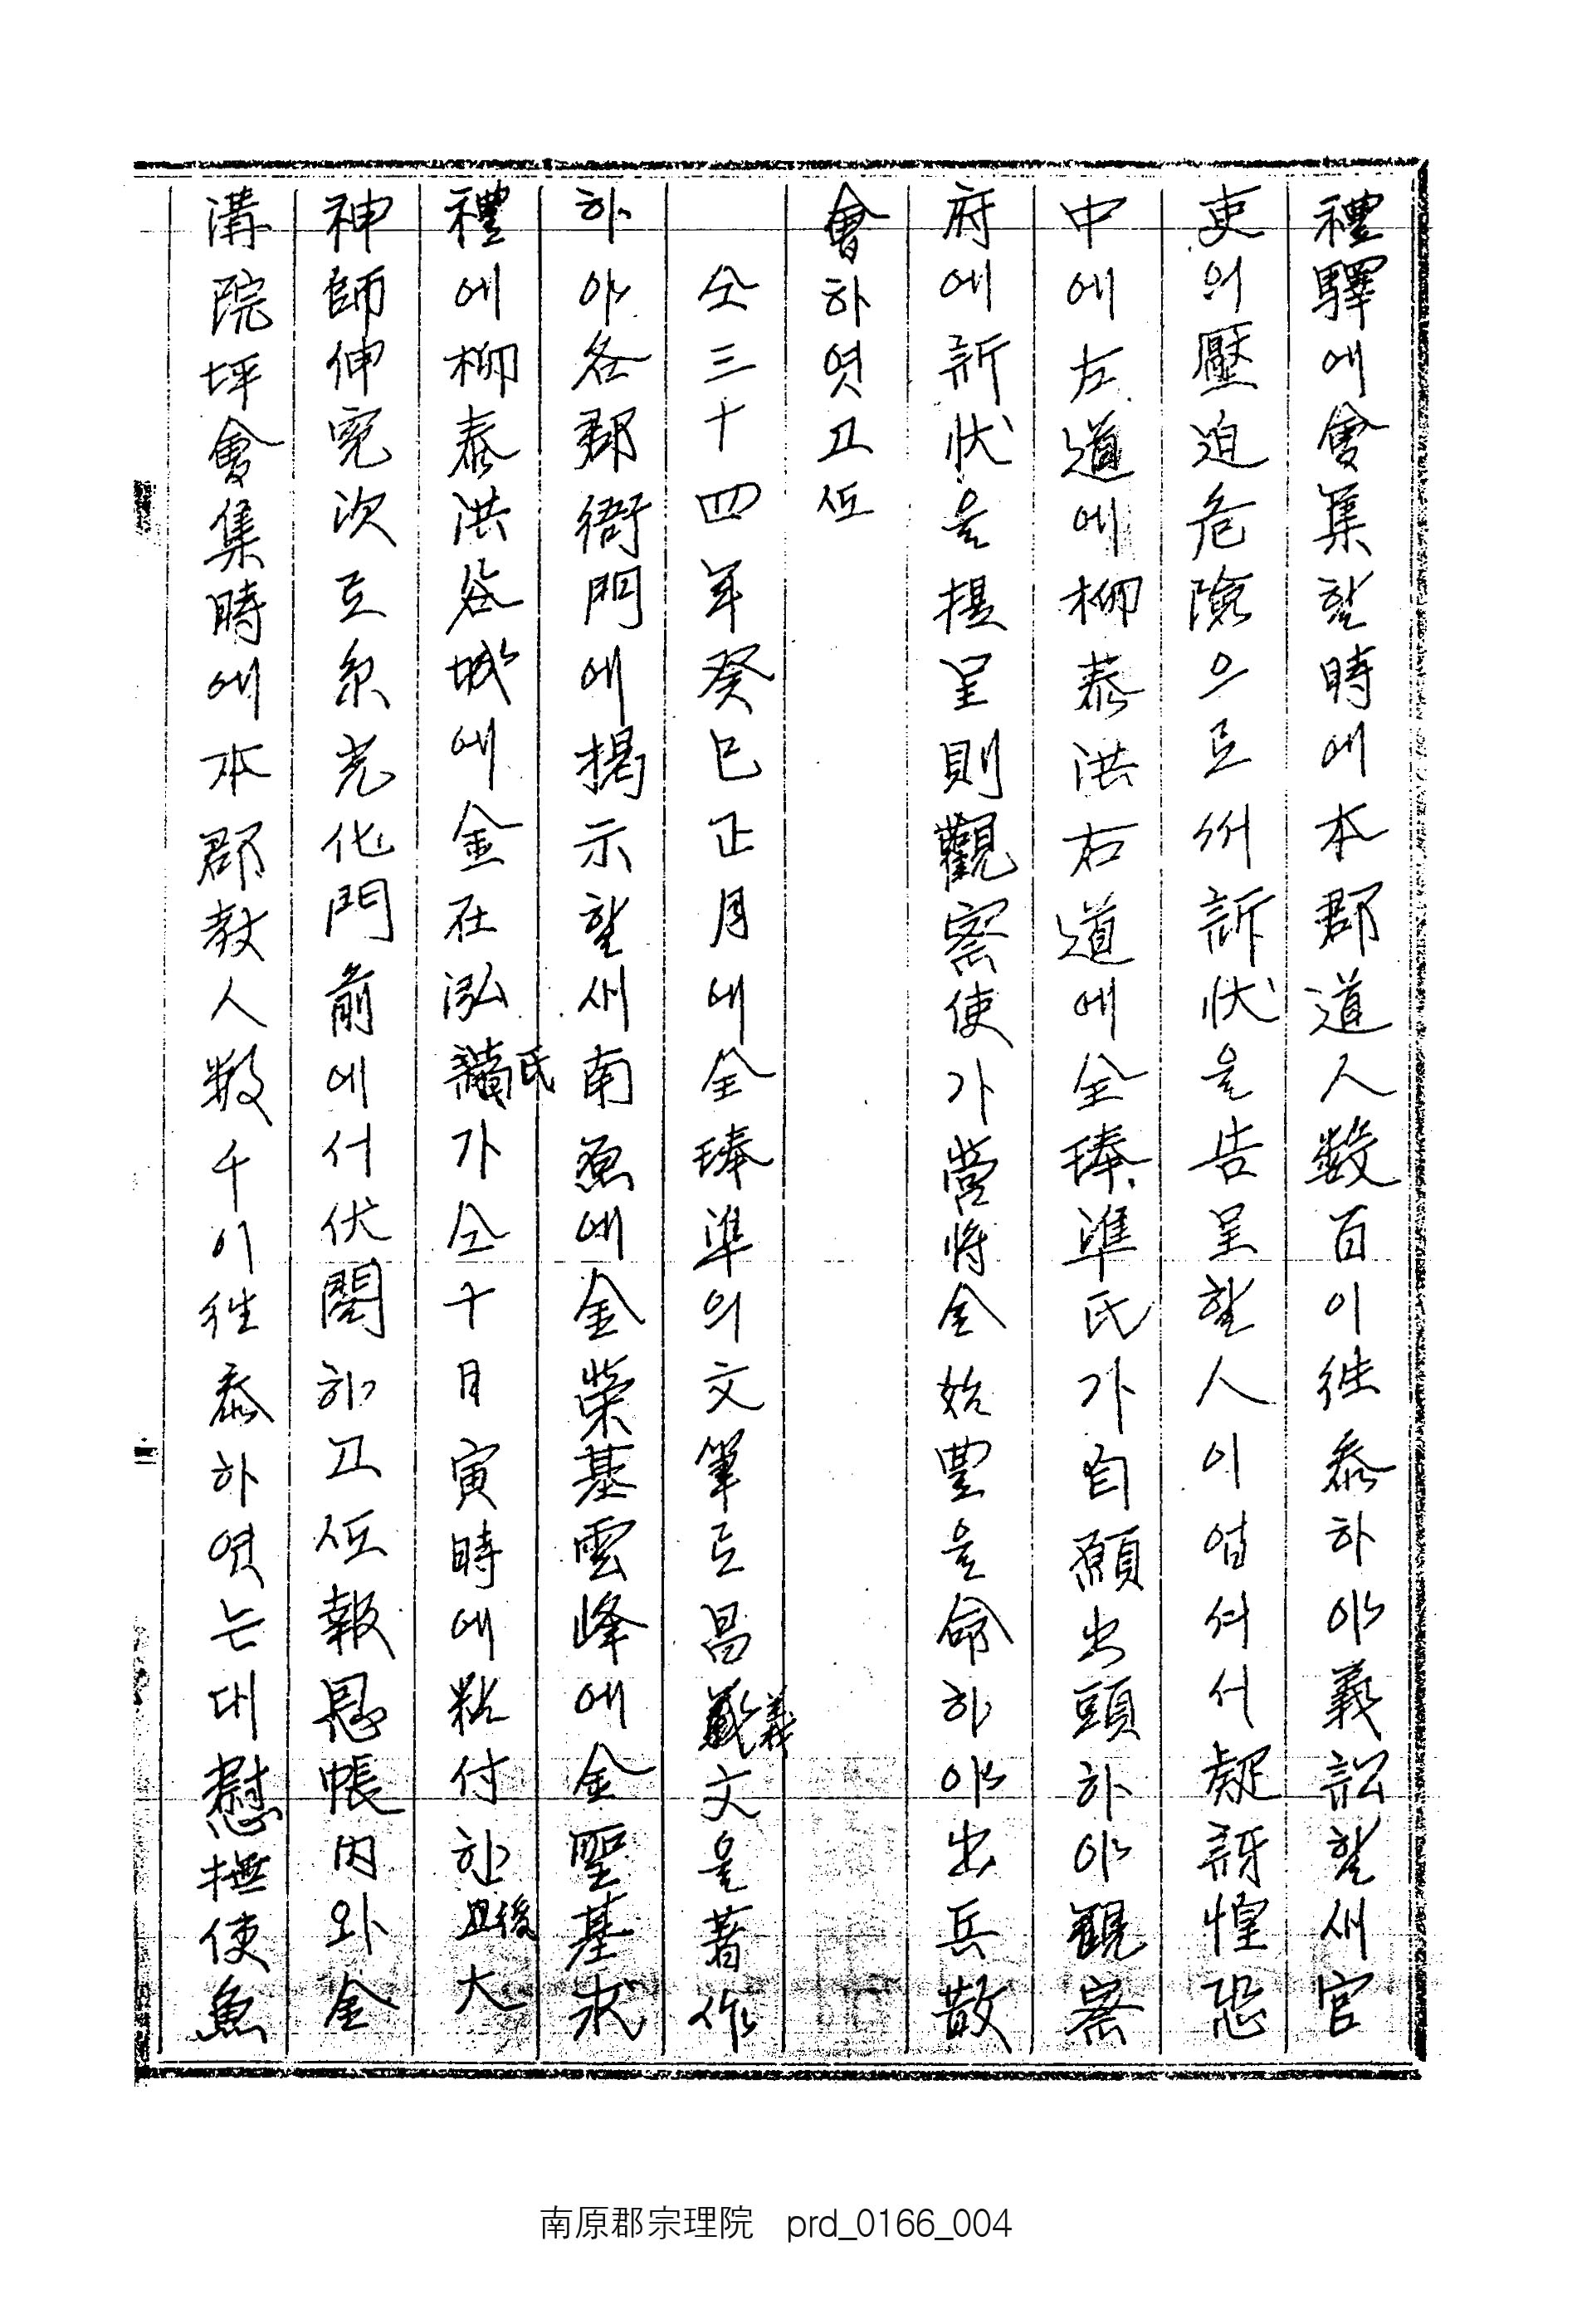 禮驛에會集할時에本郡道人數百이往叅하야義訟할새官
吏의壓迫危險으로써訴狀을告呈할人이업셔서疑訝惶恐
中에左道에柳泰洪右道에全琫準氏가自願出頭하야觀察
府에訴狀을提呈則觀察使가營將金始豊을命하야出兵散
會하엿고仸
仝三十四年癸巳正月에全琫準의文筆로昌義文을著作
하야各郡衙門에揭示할새南原에金榮基雲峰에金聖基求
禮에柳泰洪谷城에金在泓氏가仝十月寅時에粘付하고後大
神師伸寃次로京光化門前에서伏閤하고仸報恩帳內와金
溝院坪會集時에本郡敎人數千이往叅하엿는대慰撫使魚
南原郡宗理院 prd_0166_004